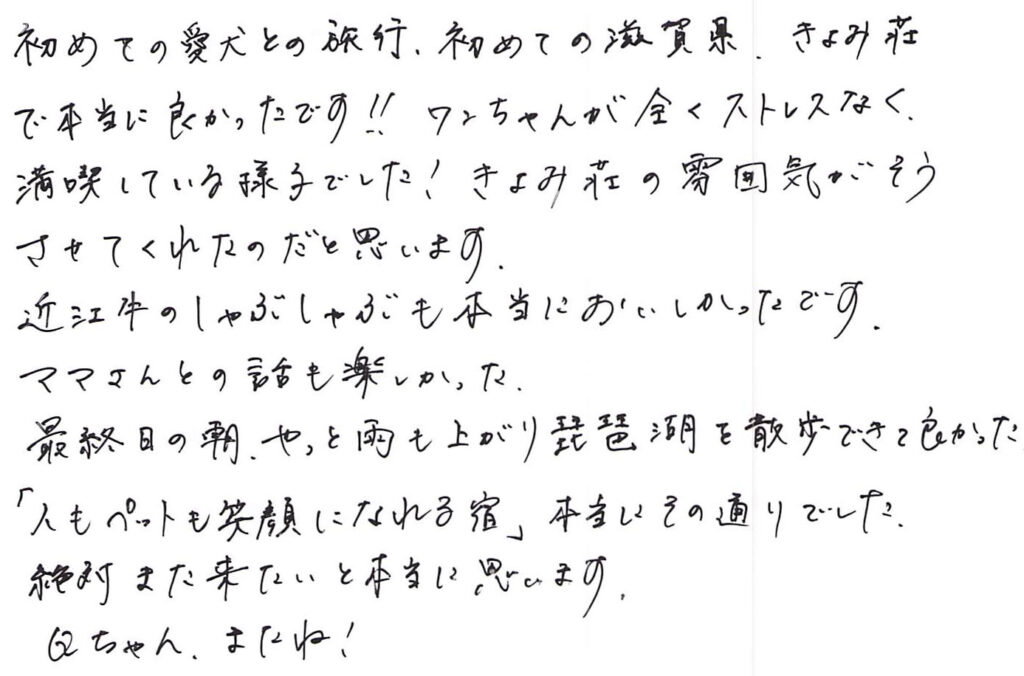 初めての愛犬との旅行、初めての滋賀県、きよみ荘
で本当に良かったです!! ワンちゃんが全くストレスなく、
満喫している様子でした！きよみ荘の雰囲気がそう
させてくれたのだと思います。
近江牛のしゃぶしゃぶも本当においしかったです。
ママさんとの話も楽しかった。
最終日の朝、やっと雨も上がり琵琶湖を散歩できて良かった
「人もペットも笑顔になれる宿」本当にその通りでした。
絶対また来たいと本当に思います。
Qちゃん、またね！